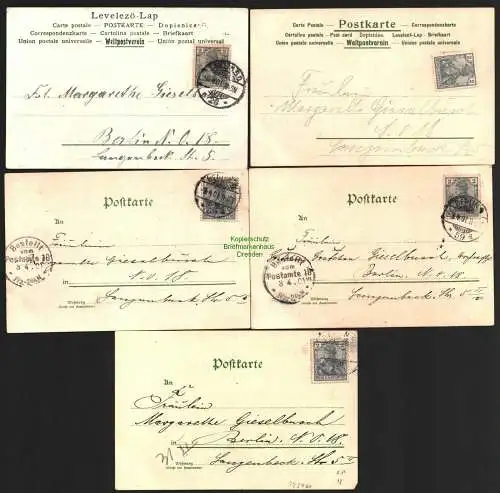 Levelező-Lap
Carte postale — POSTKARTE — Dopisnice
Correspondenzkarte — Cartolina postale — Briefkaart
Union postale universelle — Weltpostverein — Union postal universal
Frl. Margarethe Gieselbusch
Berlin N. O. 18.
Langenbeck Str. 5.
Carte Postale Postkarte Correspondenzkarte
Cartolina postale Post card Dopisnice Levelező-Lap Briefkaart
Union postale universelle Weltpostverein
Fräulein
Margarete Gieselbusch
Langenbeck
Postkarte
An
Fräulein
Margarethe Gieselbusch
in
N. O. 18
Wohnung
Langenbeck Str. 5 II
Bestellt
vom
Postamte 18
8 4
Kopierschutz
Briefmarkenhaus
Dresden
Postkarte
An
Fräulein Gretchen Gieselbusch
Berlin, N. O. 18
Wohnung
Langenbeck, Str. 5 II
Bestellt
vom
Postamte 18
8 4
Postkarte
An
Fräulein
Margarethe Gieselbusch
in Berlin, N. O. 18.
Wohnung
Langenbeck Str 5 II